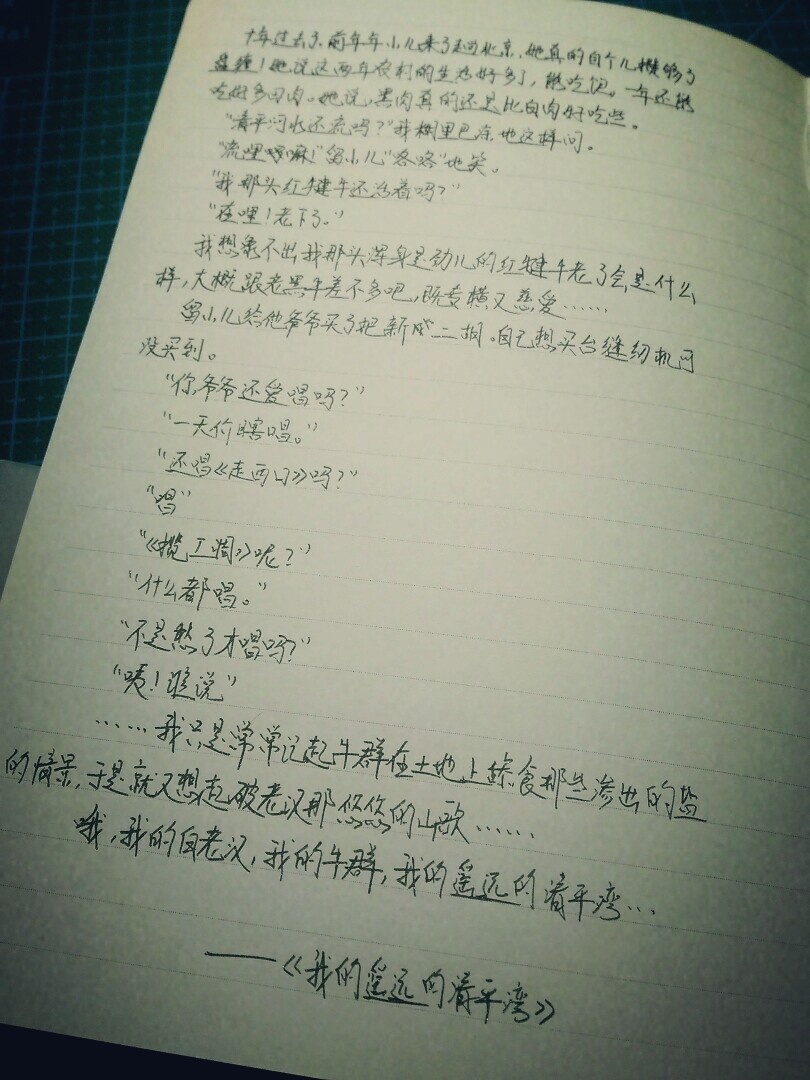 十年过去了。前年年小儿来了趟北京，她真的自个儿攒够了
盘缠！她说这两年农村的生活好多了，能吃饱，一年还能
吃好多回肉。她说，黑肉真的还是比白肉好吃些。
"清平河水还流吗？"我糊里巴涂地这样问。
"流哩嘛！"留小儿"咯咯"地笑。
"我那头红犍牛还活着吗？"
"在哩！老下了。"
我想象不出我那头浑身是劲儿的红犍牛老了会是什么
样，大概跟老黑牛差不多吧，既专横又慈爱……
留小儿给他爷爷买了把新成二胡。自己想买台缝纫机可
没买到。
"你爷爷还爱唱吗？"
"一天价瞎唱。"
"还唱《走西口》吗？"
"唱"
"《揽工调》呢？"
"什么都唱。"
"不是愁了才唱吗？"
"咦！谁说"
……我只是常常记起牛群在土地上舔食那些渗出的盐
的情景，于是就又想起破老汉那悠悠的山歌……
哦，我的白老汉，我的牛群，我的遥远的清平湾…
——《我的遥远的清平湾》